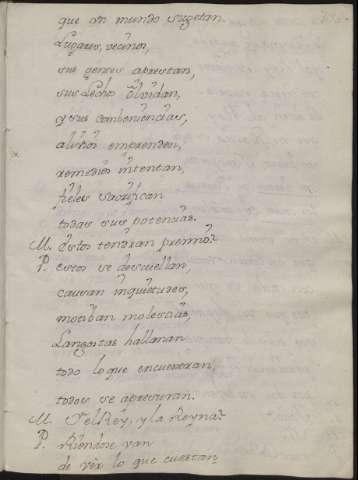 que un mundo sugetan.
Lugares, vecinos,
sus genses aprestan,
sus Lechos olvidan,
y sus conbeniencias,
alivios emprenden,
remedios intentan,
fieles sacrifican
todas sus potencias.
M. Estos tendran premios?
P. estos se desvuellan,
causan inquietudes,
motiban molestias,
Langostas hallanan
todo lo que encuentran,
todos se apresuran.
M. Y el Rey, y la Reyna?
P. Riendose van
de ver lo que cuestan